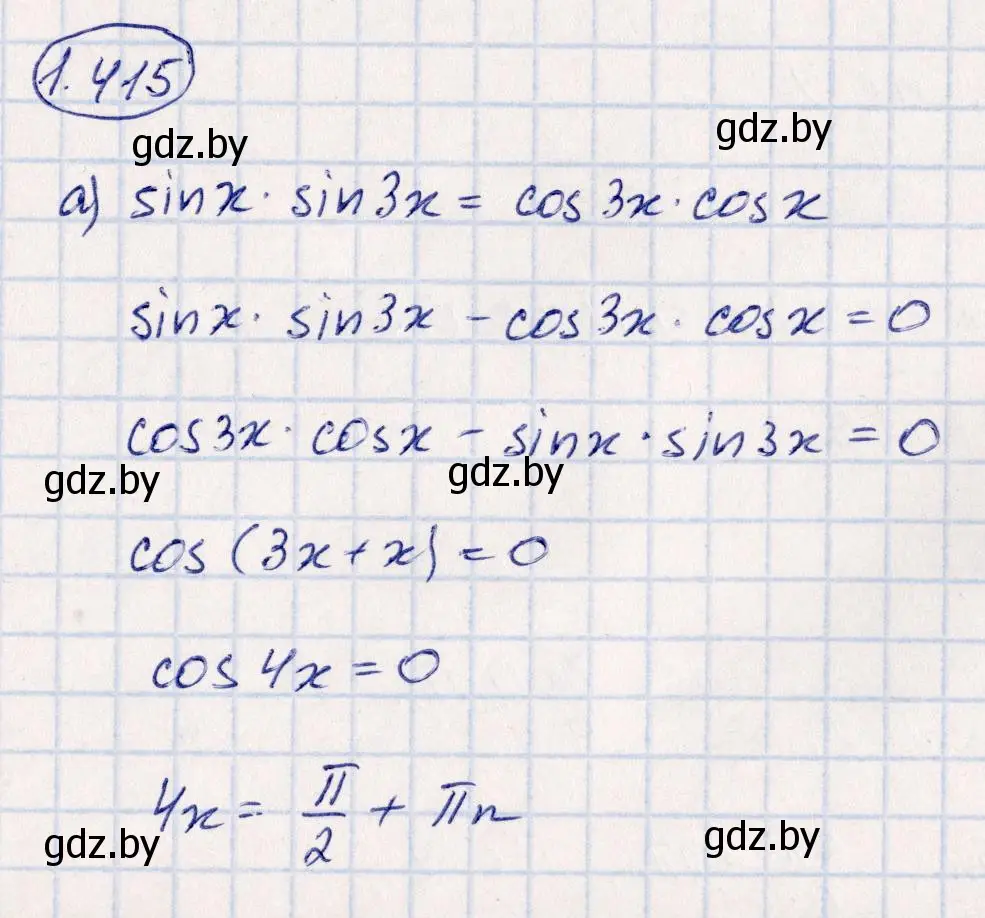 1.415
gdz.by gdz.by
a) sinx · sin3x = cos3x · cosx
sinx · sin3x - cos3x · cosx = 0
cos3x · cosx - sinx · sin3x = 0
gdz.by gdz.by
cos(3x+x) = 0
cos4x = 0
4x = π/2 + πn
gdz.by gdz.by